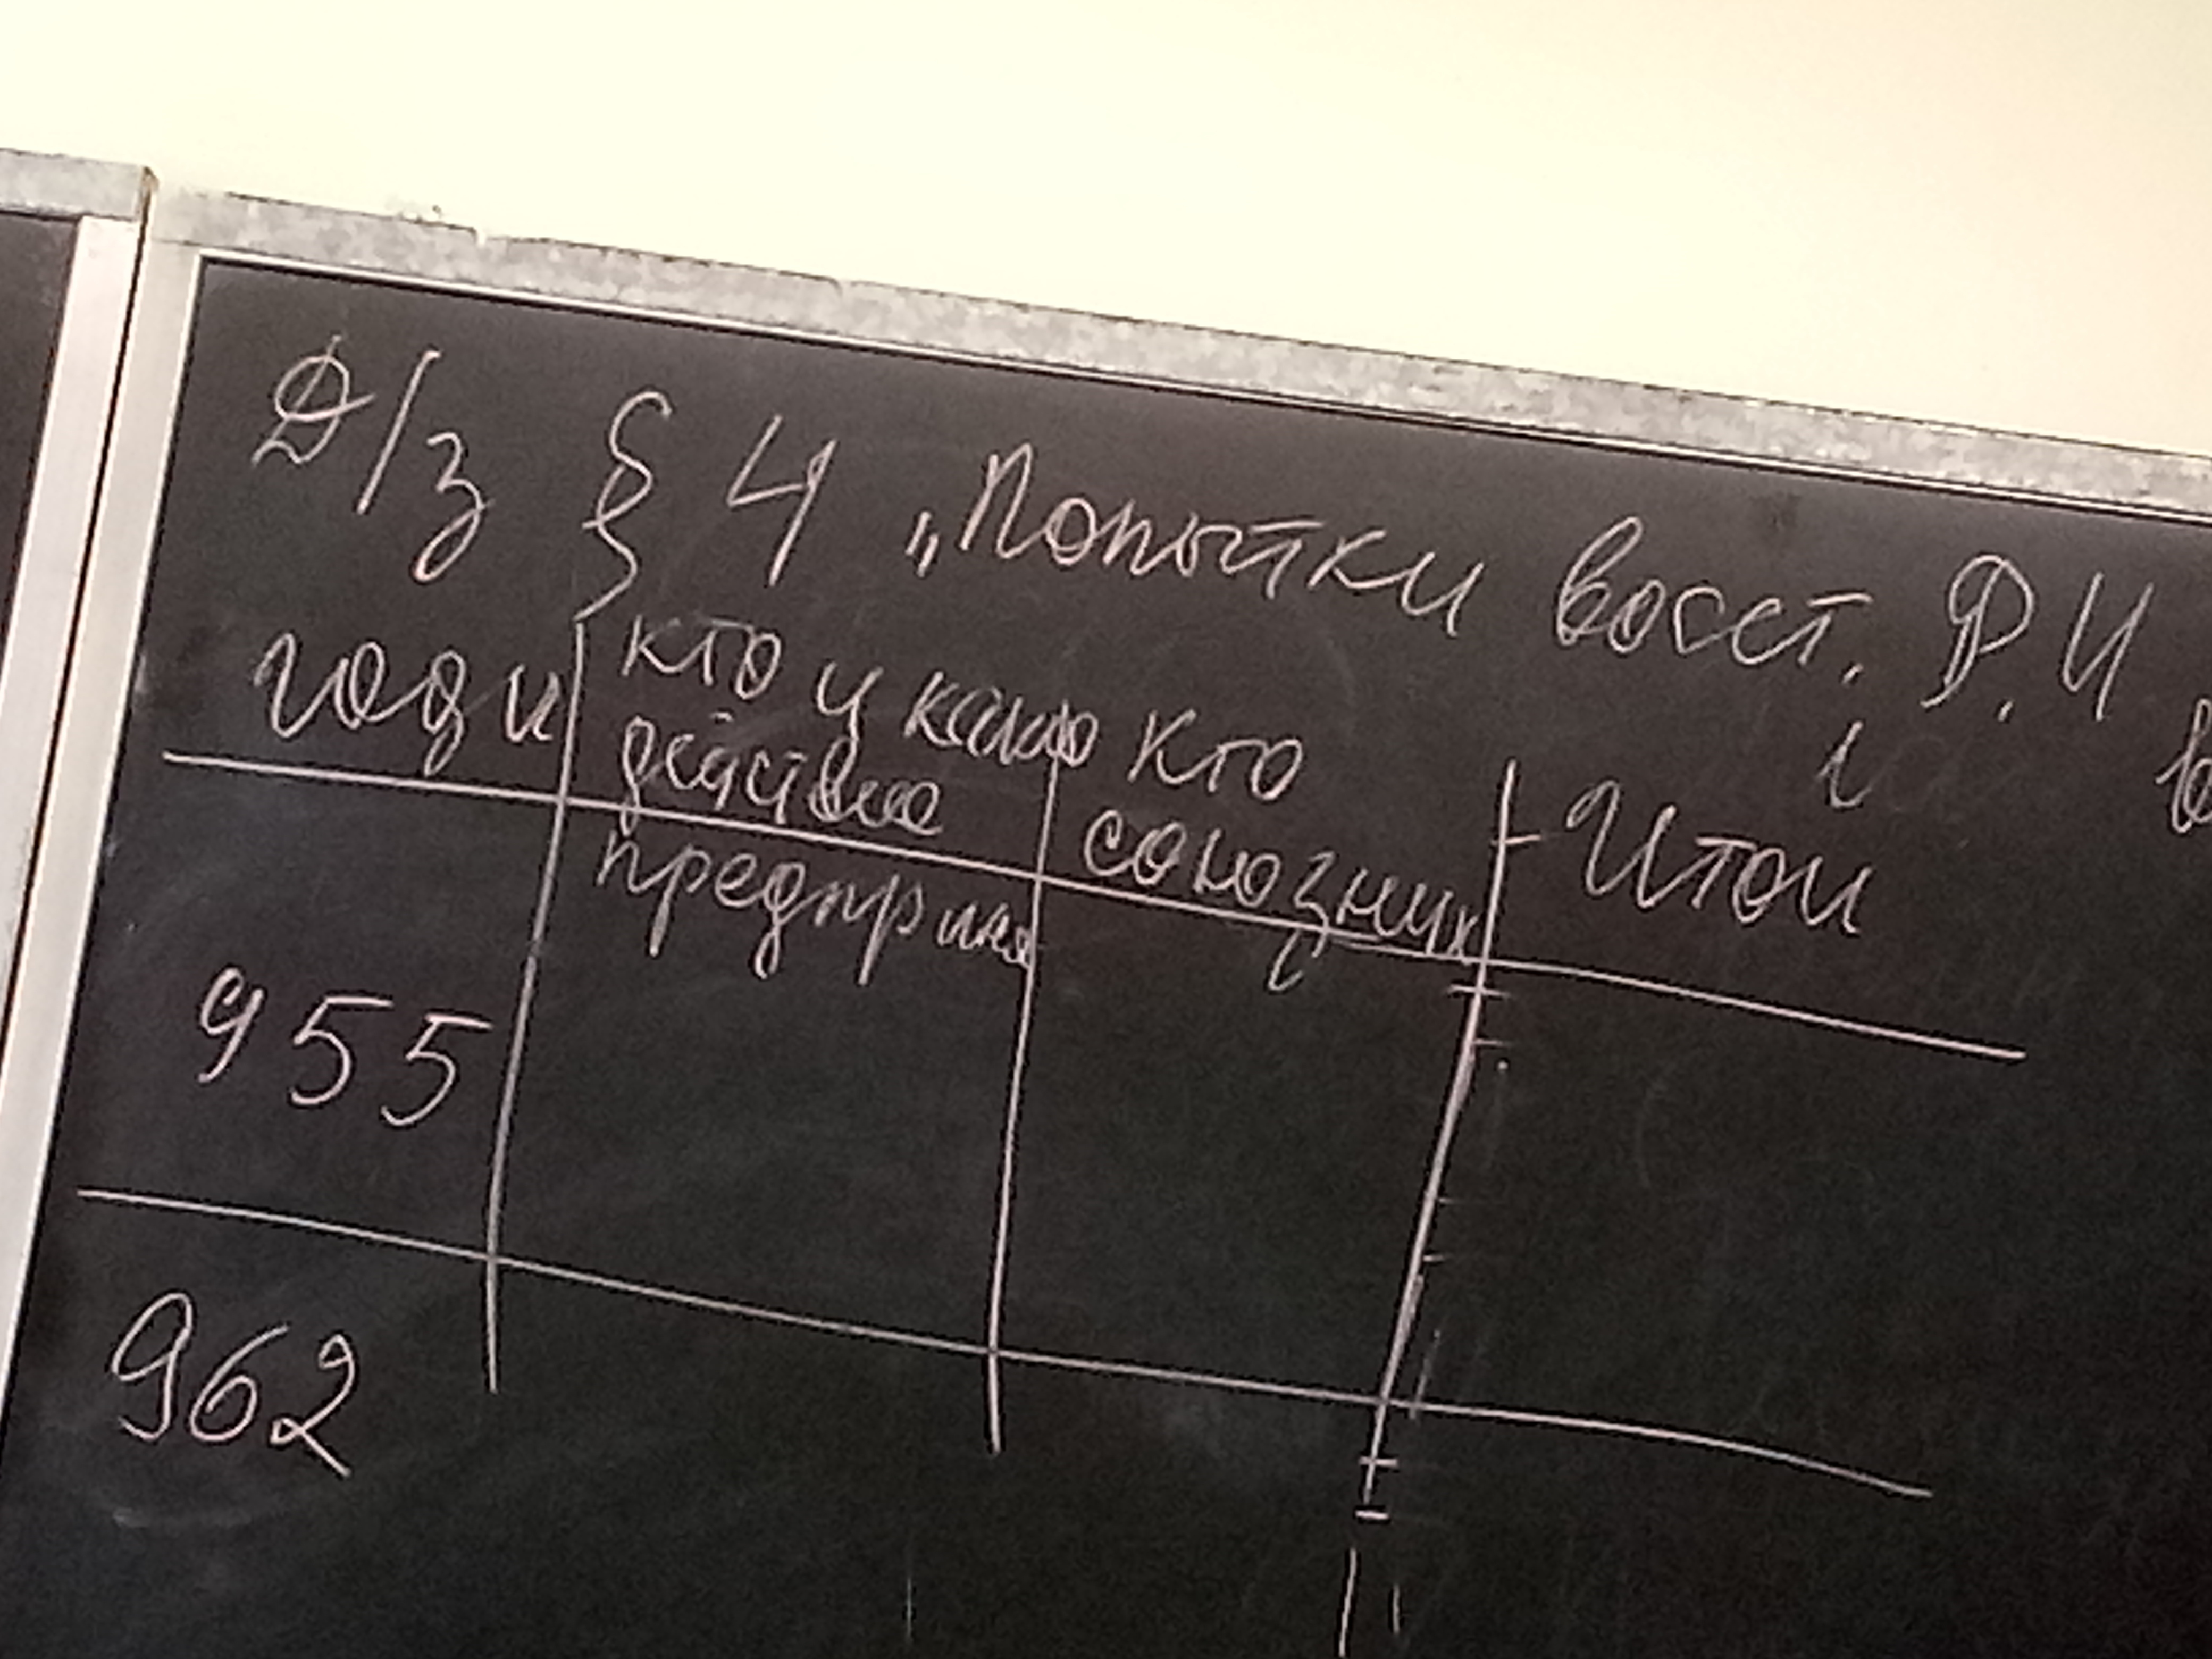 Д/з § 4 „Попытки восст. Р.И
годы
кто и какие
действие
предприня
кто
союзник
Итог
955
962